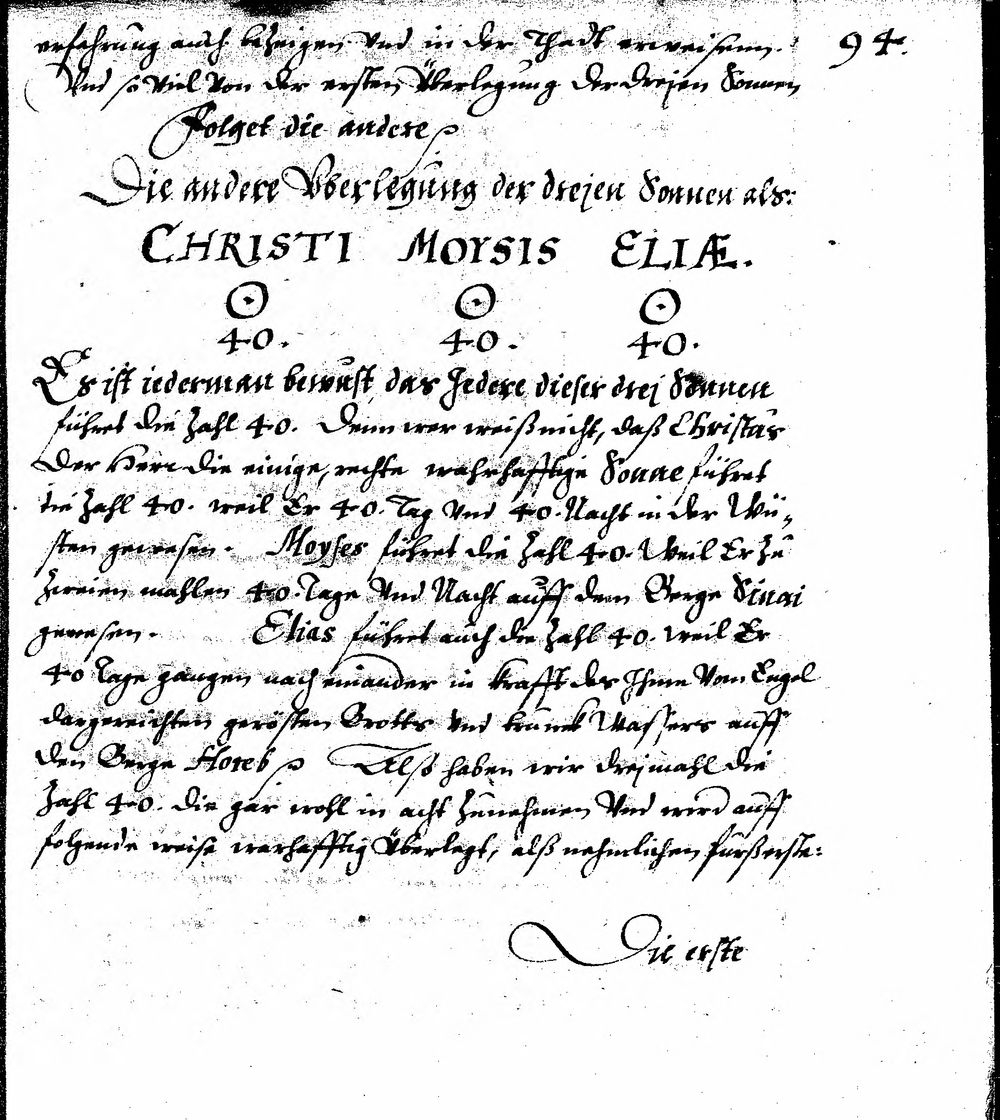 erfahrung auch bezeigen Vnd in der Thadt erweisenn. 94.
Vnd so viel Von der ersten Überlegung der dreien Sonnen
Folget die andere
Die andere Vberlegung der dreien Sonnen als:
CHRISTI MOYSIS ELIÆ.
☉ ☉ ☉
40. 40. 40.
Es ist iederman bewust, das Jedere dieser drei Sonnen
führet die Zahl 40. Denn wer weiß nicht, daß Christus
der Herr die einige, rechte wahrhafftige Sonne führet
die Zahl 40. weil Er 40. Tag Vnd 40. Nacht in der Wü-
sten gewesen. Moyses führet die Zahl 40. Weil Er zu
zweien mahlen 40. Tage Vnd Nacht auff dem Berge Sinai
gewesen. Elias führet auch die Zahl 40. weil Er
40 Tage gangen nach einander in krafft des Ihme Vom Engel
dargereichten gerösten Brotts Vnd trunck Wassers auff
den Berge Horeb Alß haben wir dreimahl die
Zahl 40. die gar wohl in acht Zunehmen Vnd wird auff
folgende weise warhafftig Überlegt, alß nehmlichen fürß erste:
Die erste